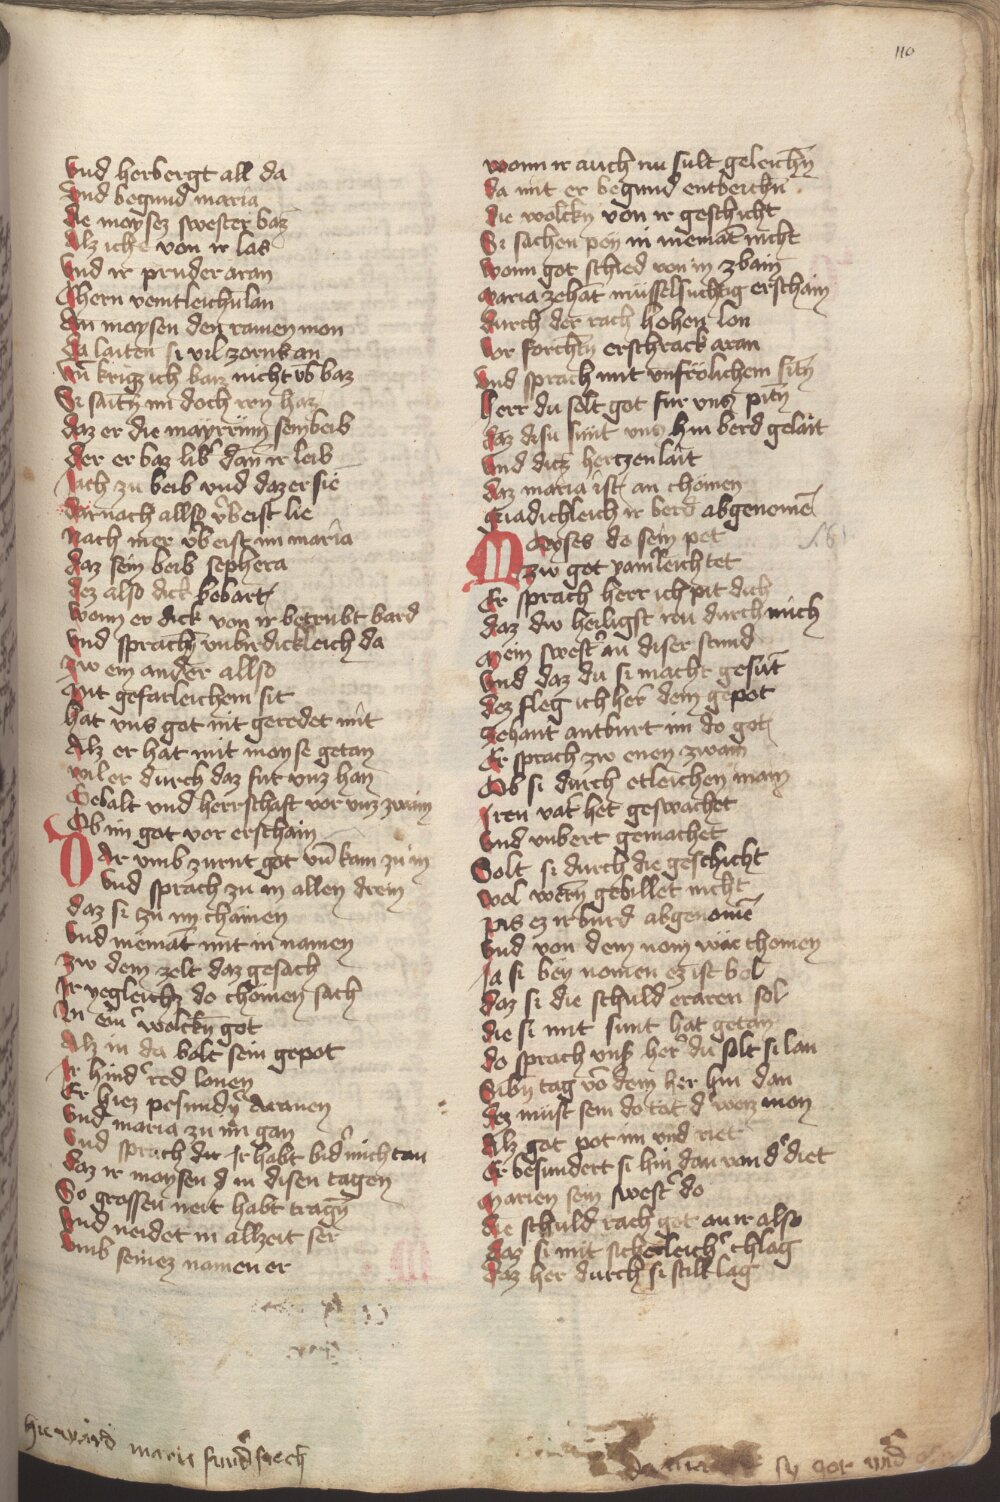 110
Vnd herbergt all da
Vnd begund maria
die moyses swester baz
Alz ich e von ir las
Vnd ir pruder aran
Chern veintleichn lan
An moysen den ramen mon
da laiten si vil zornk an
krig ich baiz nicht vb baz
Si saitn im doch haz
daz er die mayrrinn sein beib
der er baz lib dan ir leib
Nach zu beib vnd daz er sie
darnach allso vbeist lie
Nach mer vbeist im maria
daz sein beib sephera
dez also dick bebart
wonn er dick von ir betrubt bard
Vnd sprach vnbirdickleich da
Zw ein ander allso
Mit gefarleichem sit
hat vns got nit geredet mit
Alz er hat mit moyse getan
wil er durch daz fur vnz han
Gebalt vnd herrschaft vor vnz zwain
Ob im got vor erschain
Dar vmb zurnt got vn kam zu in
Vnd sprach zu in allen drein
daz si zu im chamen
Vnd niemat mit in namen
Zw dem zelt daz gesach
Ir yegleichz do chomen sach
In eim wolckn got
Alz in da bolt sein gepot
Ir hind red lonen
Er hiez pesundn Aranen
Vnd maria zu im gan
Vnd sprach Ir habt bid mich tan
daz ir moysen in disen tagen
So grossen neit habt tragn
Vnd neidet in allzeit ser
Vmb seinez namen er
wonn ir auch nu sult geleichn
da mit er begund entbeichn
die wolckn von ir geschicht
Si sachen pey in niemat nicht
wonn got schied von in zbain
Maria zehat müsselsuchtig erschain
durch der rach hohen lon
Vor forchtn erschrack aran
Vnd sprach mit vnfrölichem sitn
herr du solt got fur vns pitn
daz disu sunt vns hin berd gelait
Vnd dicz hertzenlait
daz maria ist an chömen
Gnadichleich ir berd abgenomē
Moyses do sein pet
zw got pamleich tet
Er sprach herr ich pit dich
daz dw heiligst nu durch mich
Mein swest an diser stund
Vnd daz du si machst gesūt
dez fleg ich her dein gepot
Zehant antburt im do got
Er sprach zw enen zwain
Ob si durch etleichen main
Iren vat het geswachet
Vnd vnbert gemachet
Solt si durch die geschicht
wol wern gebillet nicht
pis ez ir burd abgenomē
Vnd von dem nom wär chomen
Ja si bey nomen ez ist bol
daz si die schuld eraren sol
die si mit sunt hat getan
do sprach vnß her du solt si lan
Sibn tag vō dem her hin dan
dez must sein do tot d weiz mon
Alz got pot im vnd riet
Er besundert si hin dan von d diet
Marien sein swest do
die schuld rach got an ir also
daz si mit sicherleich chlag
daz her durch si still lag
hie ward maria sund siech
sy got vnd